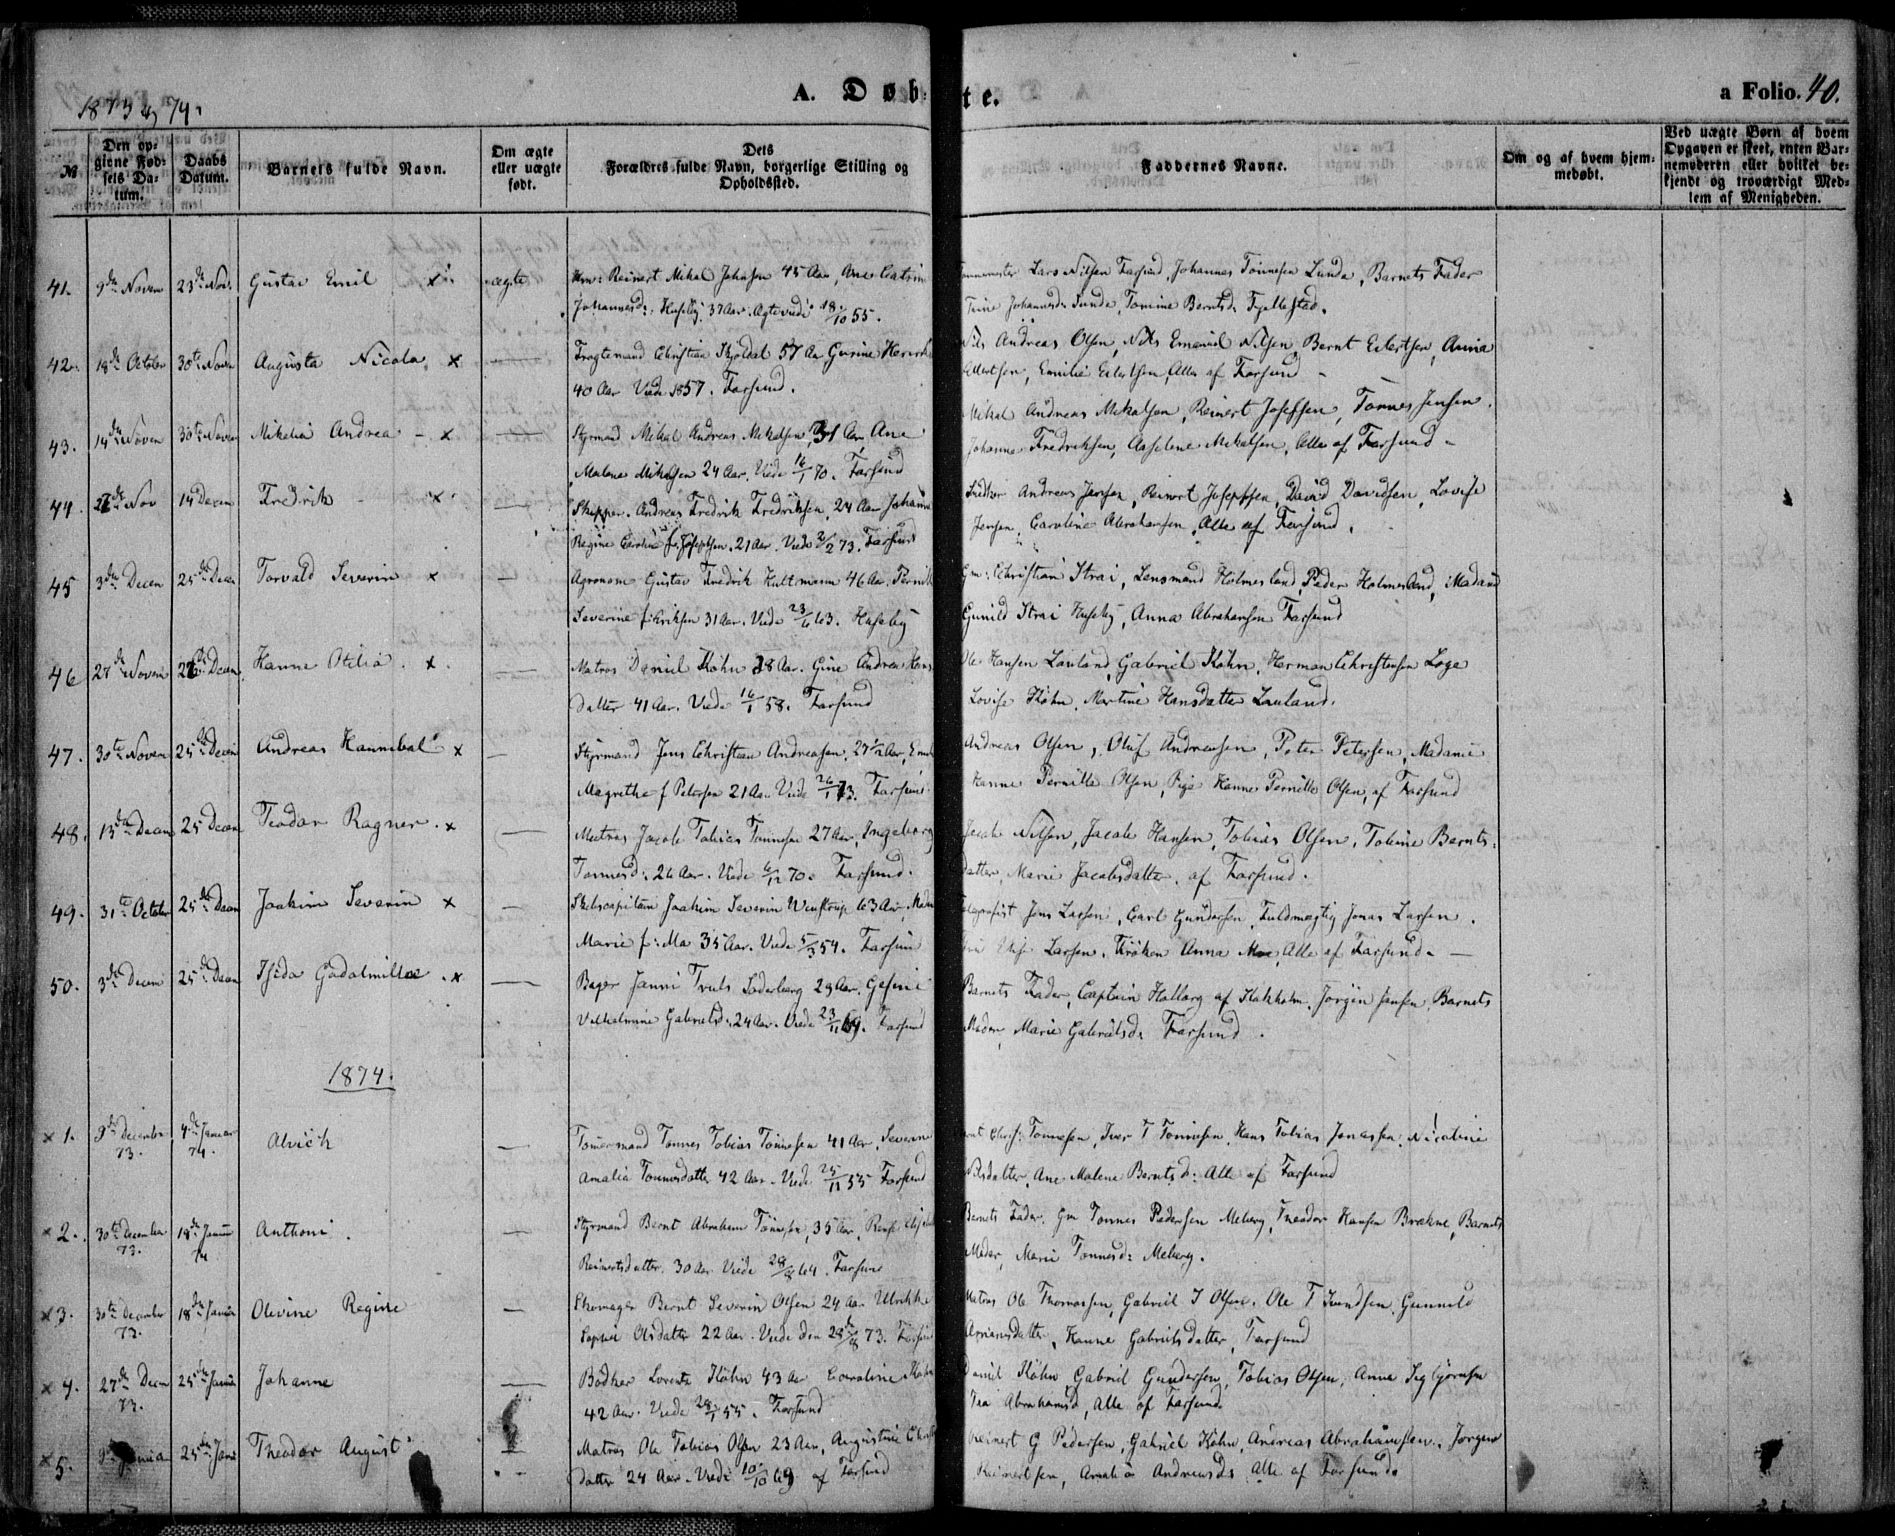 1873 og 74.
A. Døbte.
a Folio. 40.
№
Den opgivne Fødsels Datum.
Daabs Datum.
Barnets fulde Navn.
Om ægte eller uægte født.
Dets Forældres fulde Navn, borgerlige Stilling og Opholdssted.
Faddernes Navne.
Om og af hvem hjemmedøbt.
Ved uægte Børn af hvem Opgaven er skeet, enten Barnemoderen eller hvilket bekjendt og troværdigt Medlem af Menigheden.
41. 9de Novem 23de Nov. Gustav Emil x ægte Reinert Mikal Johnsen 45 Aar, Ane Catrine Lars Nilsen Farsund, Johannes Tönnesen Lunde, Barnets Fader
Johannesd: Huseby 37 Aar. Ægteviede 18/10 55. Trine Johannesd. Sunde, Tomine Berntsd. Fjellestad.
42. 18de October 30te Novem Augusta Nicola x Fragtemand Christian Skjoldal 57 Aar Gurine Nils Andreas Olsen, Nils Emanuel Nilsen, Bernt Eilertsen, Anna
40 Aar Viede 1857. Farsund. Eilertsen, Emilie Eilertsen, Alle af Farsund
43. 14de Novem 30te Novem Mikelia Andrea x Styrmand Mikal Andreas Mikalsen, 31 Aar Ane Mikal Andreas Mekalsen, Reinert Josefsen, Tönnes Jensen,
Malene Mikalsen 24 Aar. Viede 16/1 70. Farsund Johanne Fredriksen, Asselene Mekalsen, Alle af Farsund
44. Nov 14 Decem Fredrik x Skipper Andreas Fredrik Fredriksen, 24 Aar Johanne Andreas Jensen, Reinert Josephsen, David Davidsen, Lovise
Regine Caroline f. Josephsen. 21 Aar. Viede 2/2 73. Farsund Jensen, Caroline Abrahamsen, Alle af Farsund.
45 3de Decem 25de Decem Torvald Severin x Agronom Gustav Fredrik Hultmann 46 Aar. Pernille Gm: Christian Strai, Lensmand Holmesland, Peder Holmesland, Madam
Severine f. Eriksen 31 Aar. Viede 23/6 63. Huseby Gunild Strai Huseby, Anna Abrahamsen Farsund
46 27de Novem 26de Decem Hanne Otelia x Matros Daniel Köhn 38 Aar. Gine Andrea Hans Ole Hansen Lauland, Gabriel Köhn, Herman Christensen Loge
datter 41 Aar. Viede 16/1 58. Farsund Lovise Köhn, Martine Hansdatter Lauland.
47. 30te Novem 25de Decem Andreas Hannibal x Styrmand Jens Christian Andreasen, 27 1/2 Aar, Andreas Olsen, Oluf Andreasen, Peter Petersen, Madame
Magrethe f. Petersen 21 Aar. Viede 26/1 73. Farsund Hanne Pernille Olsen, Pige Hanne Pernille Olsen, af Farsund
48. 13de Decem 25 Decem Teodor Ragner x Matros Jacob Tobias Tönnesen 27 Aar, Ingeborg Jacob Nilsen, Jacob Hansen, Tobias Olsen, Tobine Bernts-
Tønnesd: 26 Aar. Viede 6/12 70. Farsund. datter, Marie Jacobsdatter, af Farsund.
49. 31te October 25de Decem Joakim Severin x Skibscapitain Joakim Severin Wenstrup 63 Aar, Telegrafist Jens Larsen, Carl Gundersen, Fuldmægtig Jonas Larsen,
Marie f: Moe 35 Aar. Viede 5/3 54. Farsund Larsen, Frøken Anna Moe, Alle af Farsund.
50. 3de Decem 25de Decem Isida Gadalmillae x Bager Janni Truls Soderberg 29 Aar. Gesine Barnets Fader, Captain Hallorg af Stokholm, Jørgen Jensen, Barnets
Vilhelmine Gabrielsd. 24 Aar. Viede 23/11 69. Farsund Moder, Marie Gabrielsd. Farsund.
1874.
x 1. 9de December 73. 4de Januar 74. Alvich Tömermand Tønnes Tobias Tönnesen 41 Aar. Severine Tönnesen, Iver T Tönnesen, Hans Tobias Jonassen, Nicoline
Amalia Tønnesdatter 42 Aar. Viede 25/11 55 Farsund Nilsdatter, Ane Malene Berntsd: Alle af Farsund
x 2. 30te December 73. 18de Januar 74 Anthoni. Styrmand Bernt Abraham Tönnesen, 35 Aar, Barnets Fader, Gm Tønnes Pedersen Meberg, Theodor Hansen Brekne, Barnets
Reinertsdatter. 30 Aar Viede 28/8 64. Farsund Moder, Marie Tønnesd: Meberg.
x 3. 30te December 73. 18de Januar Olevine Regine Skomager Bernt Severin Olsen 24 Aar Ulrikke Matros Ole Thomassen, Gabriel I Olsen, Ole T Knudsen, Gunnild
Sophie Olsdatter 22 Aar. Viede den 28de/8 73. Farsund Arviansdatter, Hanne Gabrielsdatter, Farsund
x 4. 27de Decem 73. 25de Januar Johanne Bødker Lorentz Köhn 43 Aar Caroline Köhn Daniel Köhn, Gabriel Gundersen, Tobias Olsen, Anne Seglgjörnsen
42 Aar. Viede 28/1 55. Farsund Tea Abrahamsd, Alle af Farsund.
x 5. 9de Janua 25de Janu Theodor August Matros Ole Tobias Olsen 23 Aar, Augustine Reinert G Pedersen, Gabriel Köhn, Andreas Abrahamsen, Jørgen
datter 24 Aar. Viede 10/10 69 af Farsund Reinertsen, Amalie Andreasd. Alle af Farsund.